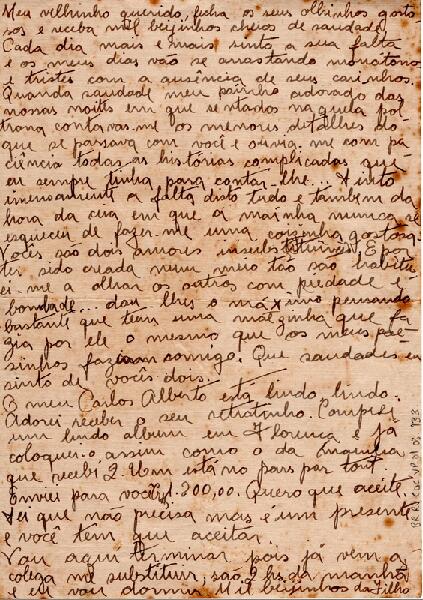 Meu velhinho querido, fecha os seus olhinhos gosto
sos e receba mil beijinhos cheios de saudade.
Cada dia mais e mais sinto a sua falta
e os meus dias vão se arrastando monotono
e tristes com a ausência de seus carinhos.
Quanda saudade meu painho adorado das
nossas noites em que sentados naquela pol
trona contava-me os menores detalhes do
que se passava com você e ouvia-me com pa
ciência todas as histórias complicadas que
eu sempre tinha para contar-lhe... Sinto
imensamente a falta disto tudo e também da
hora da ceia em que a mainha nunca se
esqueceu de fazer-me uma coizinha gostosa.
Vocês são dois amores insubstituiveis! E por
ter sido creada num meio tão são habitu
ei-me a olhar os outros com piedade e
bondade... dou-lhes o maximo pensando
bastante que tem uma mãezinha que fa
zia por ele o mesmo que os meus pae
sinhos faziam comigo. Que saudades eu
sinto de vocês dois.
O meu Carlos Alberto está lindo lindo.
Adorei receber o seu retratinho. Comprei
um lindo album em Florença e já
coloquei-o assim como o da
que recebi 2. Um está no pass par tout.
Enviei para você 200,00. Quero que aceite.
Sei que não precisa mas é um presente
e você tem que aceitar.
Vou aqui terminar pois já vem a
colega me substituir, são 2 hs da manhã
e eu vou dormir. Mil beijinhos da filha